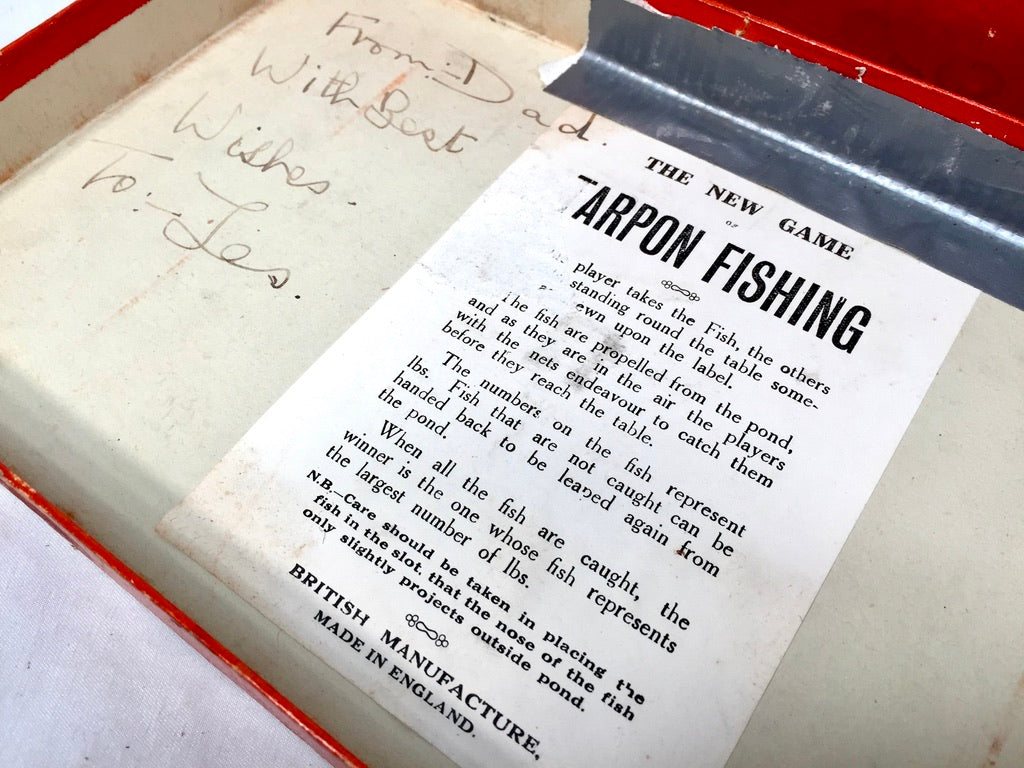 From:- Dad.
With Best
Wishes.
To:- Les.
THE NEW GAME
OF
TARPON FISHING
player takes the Fish, the others
standing round the table some-
upon the label.
The fish are propelled from the pond,
and as they are in the air the players
with the nets endeavour to catch them
before they reach the table.
The numbers on the fish represent
lbs. Fish that are not caught can be
handed back to be leaped again from
the pond.
When all the fish are caught, the
winner is the one whose fish represents
the largest number of lbs.
N.B.—Care should be taken in placing the
fish in the slot, that the nose of the fish
only slightly projects outside pond.
BRITISH MANUFACTURE,
MADE IN ENGLAND.